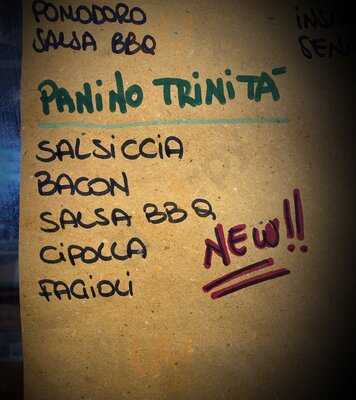 POMODORO
SALSA BBQ
PANINO TRINITÀ
SALSICCIA
BACON
SALSA BBQ
CIPOLLA
FAGIOLI
NEW!!